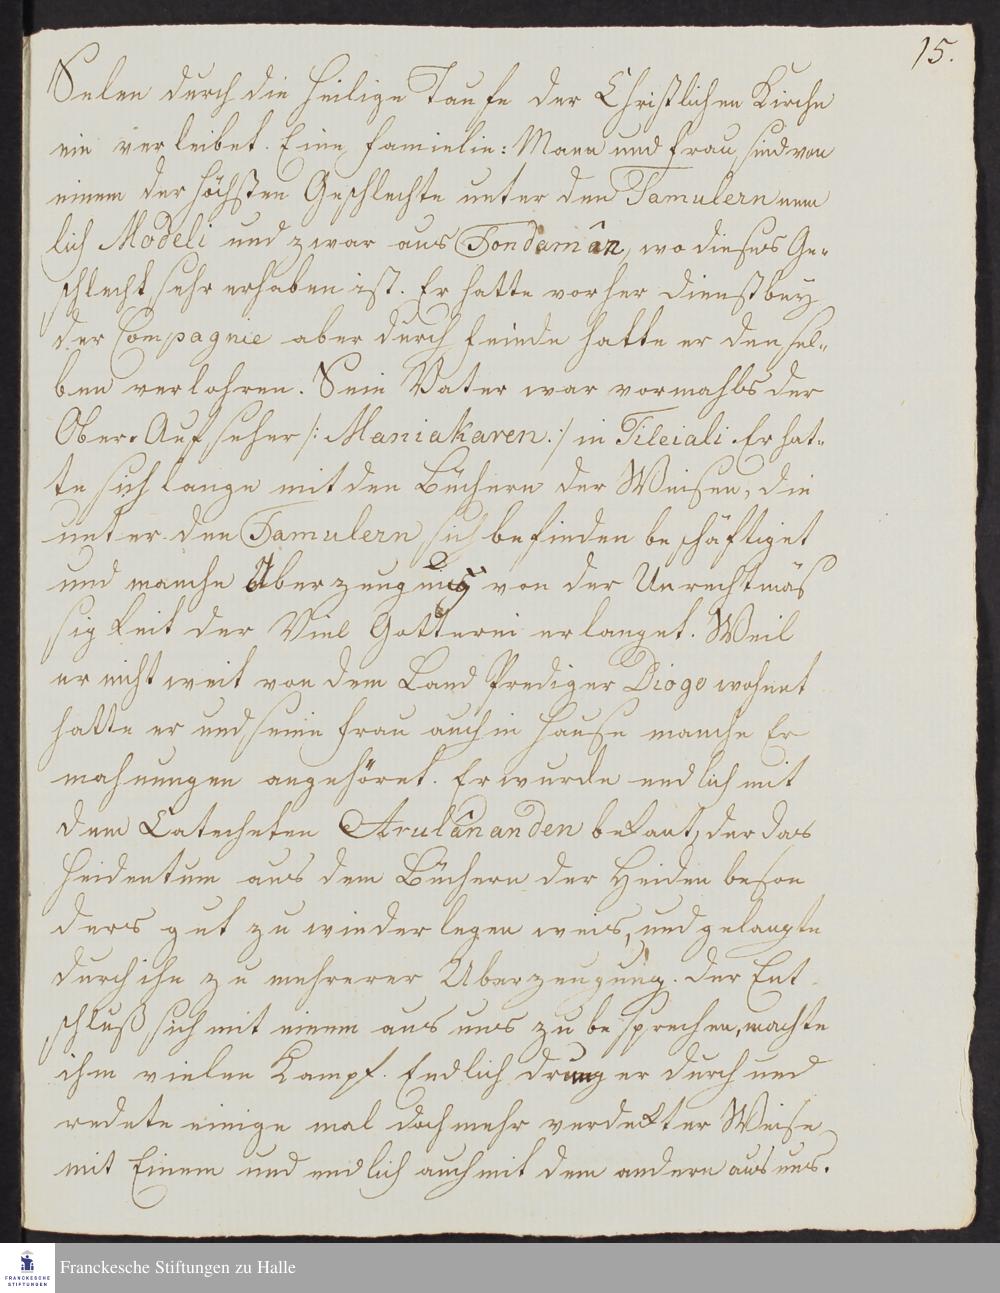 15.
Selen durch die heilige Taufe der Christlichen Kirche
ein verleibet. Eine familie: Mann und frau, sind von
einem der höchsten Geschlechte unter den Tamulern nem
lich Modeli und zwar aus Tondamân, wo dieses Ge-
schlecht sehr erhaben ist. Er hatte vorher dienst bey
der Compagnie aber durch feinde hatte er den sel-
ben verlohren. Sein Vater war vormahls der
Ober-Aufseher /: Maniakaren :/ in Tileiali. Er hat-
te sich lange mit den Büchern der Weisen, die
unter den Tamulern sich befinden beschäftiget
und manche Überzeugung von der Unrechtmäs
sigkeit der Viel Götterei erlanget. Weil
er nicht weit von dem Land Prediger Diogo wohnet
hatte er und seine frau auch in Hause manche Er
mahnungen angehöret. Er wurde endlich mit
dem Catecheten Arulânanden bekant, der das
Heidentum aus dem Büchern der Heiden beson
ders gut zu wieder legen weis, und gelangte
durch ihn zu mehrerer Uberzeugung. Der Ent
schluß sich mit einem aus uns zu besprechen, machte
ihm vielen Kampf. Endlich drung er durch und
redete einige mal doch mehr verdekter Weise
mit Einem und endlich auch mit dem andern aus uns.
Franckesche Stiftungen zu Halle
FRANCKESCHE
STIFTUNGEN